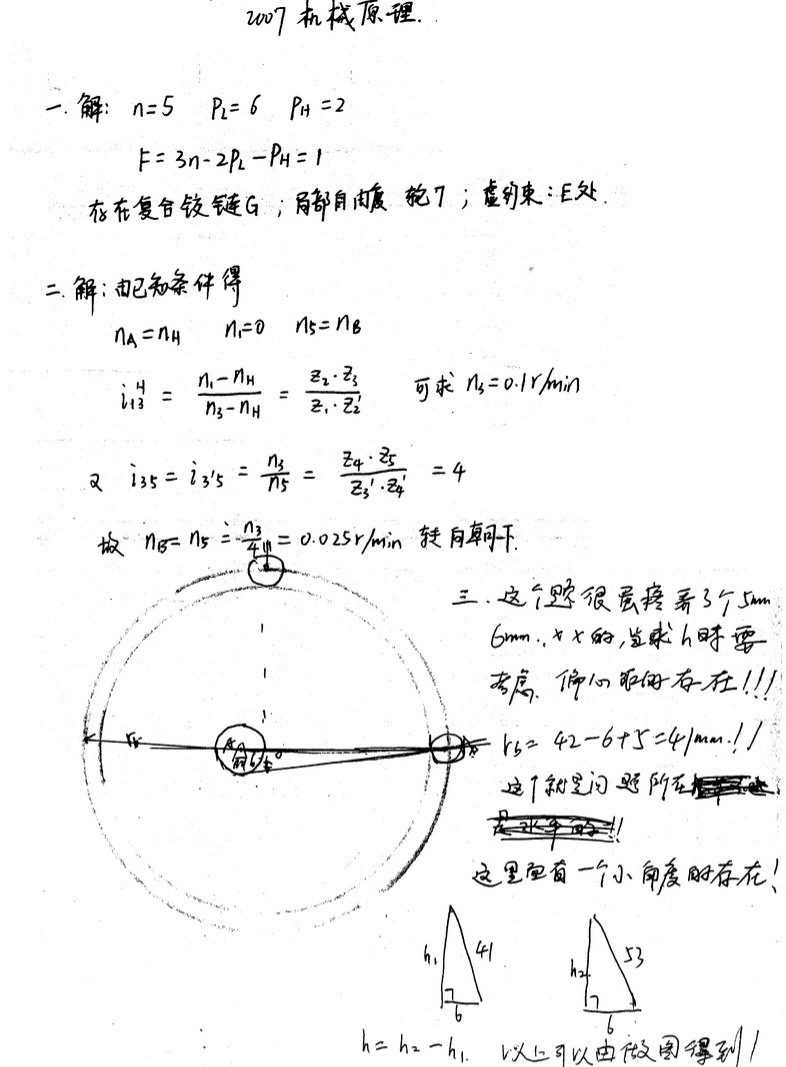 2007 机械原理.
一. 解: n=5 P_L=6 P_H=2
F=3n-2P_L-P_H=1
存在复合铰链G; 局部自由度 轮7; 虚约束: E处.
二. 解: 由已知条件得
n_A=n_H n_1=0 n_5=n_B
i_{13}^H = \frac{n_1-n_H}{n_3-n_H} = \frac{z_2·z_3}{z_1·z_2'} 可求 n_3=0.1r/min
又 i_{35}=i_{3'5}=\frac{n_3}{n_5}=\frac{z_4·z_5}{z_3'·z_4'}=4
故 n_B=n_5=\frac{n_3}{4}=0.025r/min 转向朝下.
三. 这个题很蛋疼 弄了个5mm
6mm, x x 的, 当求h时要
考虑 偏心距的存在!!!
r_b=42-6+5=41mm!!
这个就是问题所在
这里面有一个小角度的存在!
r_b
h_1 41
6
h_2 53
6
h=h_2-h_1. 以上可以由作图得到!